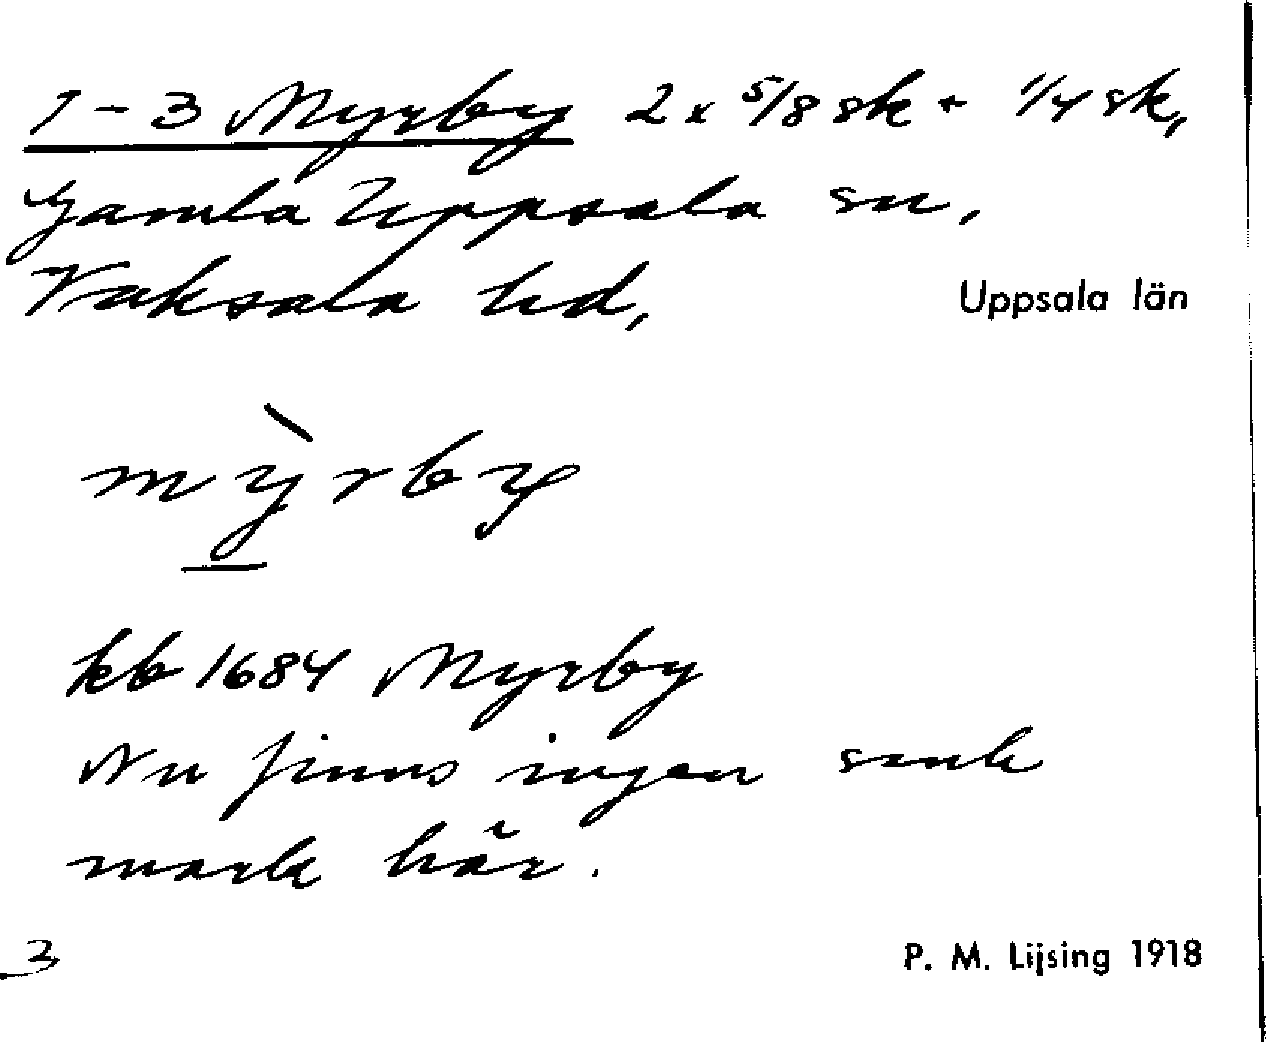 1-3 Myrby 2 x 5/8 sk + 1/4 sk,
Gamla Uppsala sn,
Vaksala hd, Uppsala län
mỳrby
kb 1684 Myrby
Nu finns ingen sank
mark här.
3 P. M. Lijsing 1918